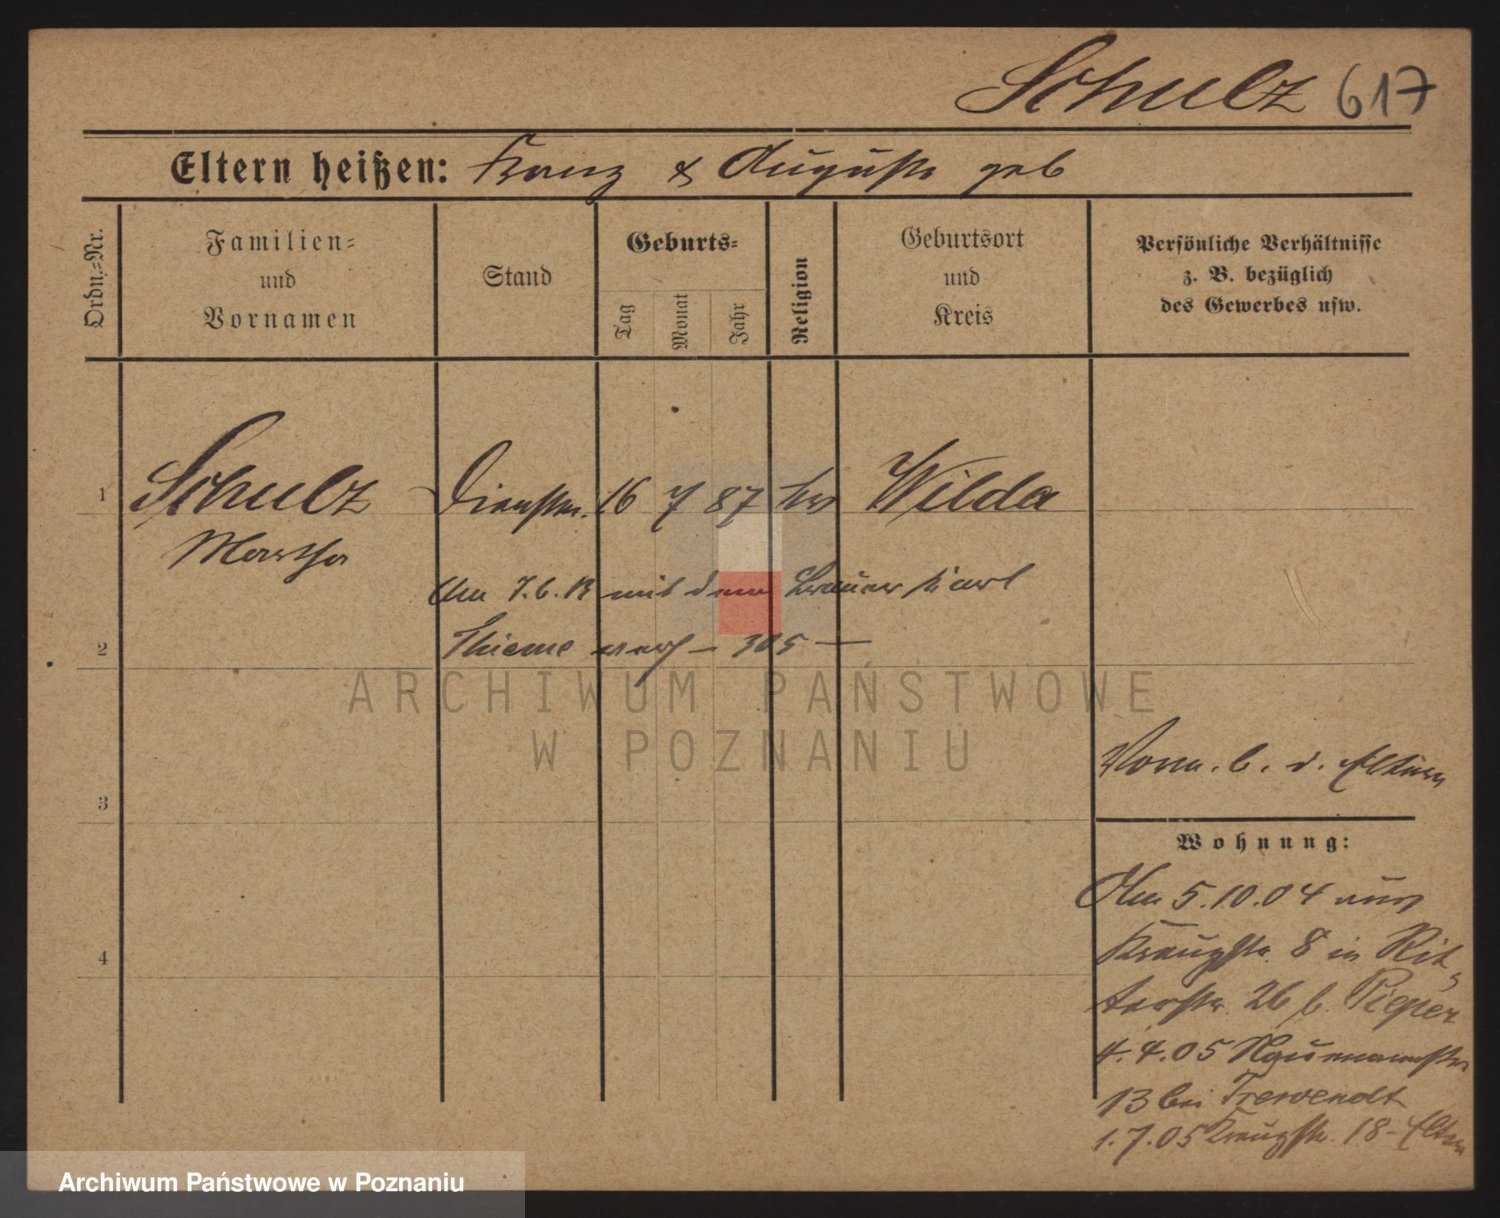 Schulz 617
Eltern heißen: Franz & Auguste geb
Ordn.-Nr.
Familien-
und
Vornamen
Stand
Geburts-
Tag
Monat
Jahr
Religion
Geburtsort
und
Kreis
Persönliche Verhältnisse
z. B. bezüglich
des Gewerbes usw.
1
Schulz
Martha
Dienstm. 16 7 87 Wilda
Am 7.6. mit dem Brauer Karl
Thieme verh – 305 —
2
3
4
Vorm. b. d. Eltern
Wohnung:
Am 5.10.04 aus
Kreuzstr. 8 in Rit-
terstr. 26 b. Pieper
4.4.05 Naumannstr
13 bei Trewendt
1.7.05 Kreuzstr. 18 - Eltern
ARCHIWUM PAŃSTWOWE
W POZNANIU
Archiwum Państwowe w Poznaniu